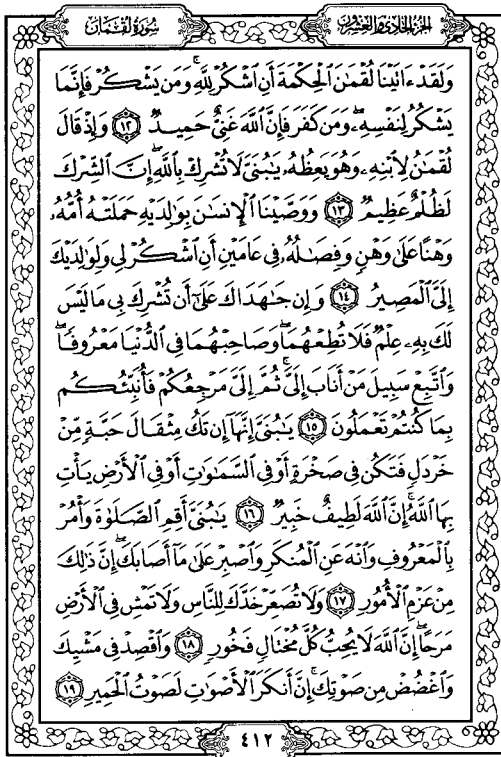 الجزء الحادي والعشرون
سورة لقمان
وَلَقَدْ ءَاتَيْنَا لُقْمَٰنَ ٱلْحِكْمَةَ أَنِ ٱشْكُرْ لِلَّهِ ۚ وَمَن يَشْكُرْ فَإِنَّمَا
يَشْكُرُ لِنَفْسِهِۦ ۖ وَمَن كَفَرَ فَإِنَّ ٱللَّهَ غَنِىٌّ حَمِيدٌ ١٢ وَإِذْ قَالَ
لُقْمَٰنُ لِٱبْنِهِۦ وَهُوَ يَعِظُهُۥ يَٰبُنَىَّ لَا تُشْرِكْ بِٱللَّهِ ۖ إِنَّ ٱلشِّرْكَ
لَظُلْمٌ عَظِيمٌ ١٣ وَوَصَّيْنَا ٱلْإِنسَٰنَ بِوَٰلِدَيْهِ حَمَلَتْهُ أُمُّهُۥ
وَهْنًا عَلَىٰ وَهْنٍ وَفِصَٰلُهُۥ فِى عَامَيْنِ أَنِ ٱشْكُرْ لِى وَلِوَٰلِدَيْكَ
إِلَىَّ ٱلْمَصِيرُ ١٤ وَإِن جَٰهَدَاكَ عَلَىٰٓ أَن تُشْرِكَ بِى مَا لَيْسَ
لَكَ بِهِۦ عِلْمٌ فَلَا تُطِعْهُمَا ۖ وَصَاحِبْهُمَا فِى ٱلدُّنْيَا مَعْرُوفًا ۖ
وَٱتَّبِعْ سَبِيلَ مَنْ أَنَابَ إِلَىَّ ۚ ثُمَّ إِلَىَّ مَرْجِعُكُمْ فَأُنَبِّئُكُم
بِمَا كُنتُمْ تَعْمَلُونَ ١٥ يَٰبُنَىَّ إِنَّهَآ إِن تَكُ مِثْقَالَ حَبَّةٍ مِّنْ
خَرْدَلٍ فَتَكُن فِى صَخْرَةٍ أَوْ فِى ٱلسَّمَٰوَٰتِ أَوْ فِى ٱلْأَرْضِ يَأْتِ
بِهَا ٱللَّهُ ۚ إِنَّ ٱللَّهَ لَطِيفٌ خَبِيرٌ ١٦ يَٰبُنَىَّ أَقِمِ ٱلصَّلَوٰةَ وَأْمُرْ
بِٱلْمَعْرُوفِ وَٱنْهَ عَنِ ٱلْمُنكَرِ وَٱصْبِرْ عَلَىٰ مَآ أَصَابَكَ ۖ إِنَّ ذَٰلِكَ
مِنْ عَزْمِ ٱلْأُمُورِ ١٧ وَلَا تُصَعِّرْ خَدَّكَ لِلنَّاسِ وَلَا تَمْشِ فِى ٱلْأَرْضِ
مَرَحًا ۖ إِنَّ ٱللَّهَ لَا يُحِبُّ كُلَّ مُخْتَالٍ فَخُورٍ ١٨ وَٱقْصِدْ فِى مَشْيِكَ
وَٱغْضُضْ مِن صَوْتِكَ ۚ إِنَّ أَنكَرَ ٱلْأَصْوَٰتِ لَصَوْتُ ٱلْحَمِيرِ ١٩
٤١٢